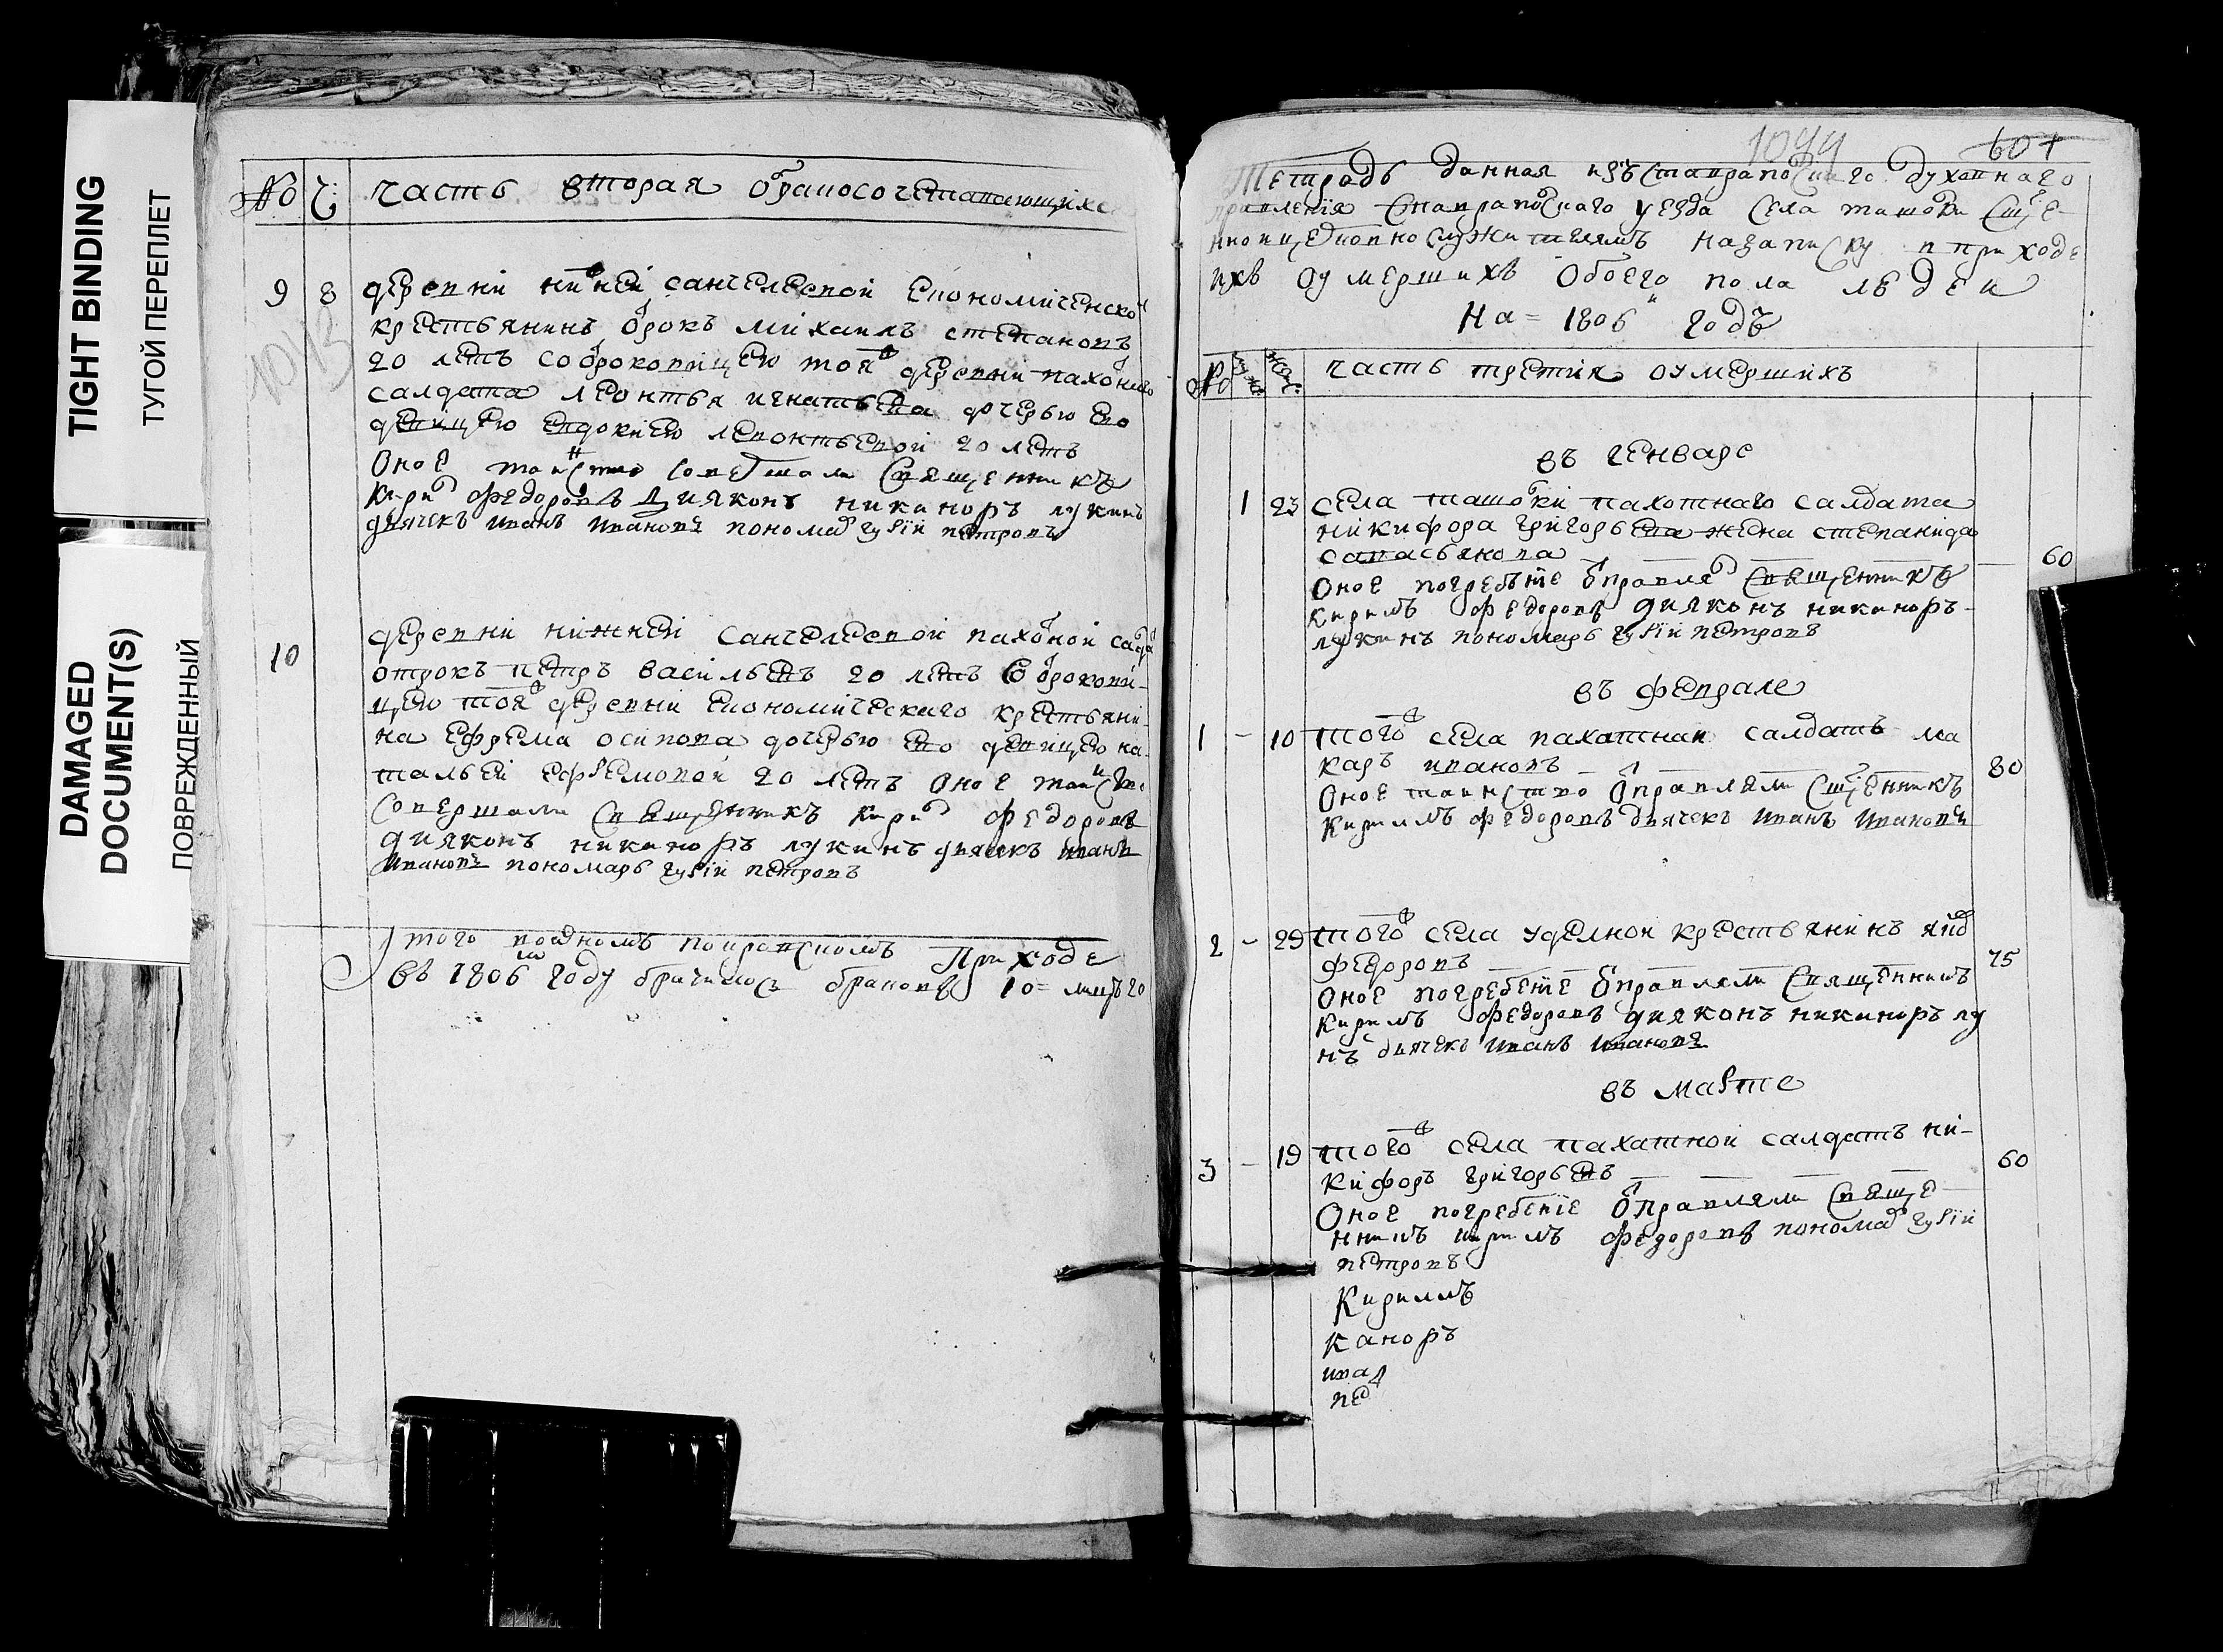 TIGHT BINDING
ТУГОЙ ПЕРЕПЛЕТ
DAMAGED
DOCUMENT(S)
ПОВРЕЖДЕННЫЙ
№ Ч:
часть вторая обракосочетавающихся
9 8 деревни нижней санчелеевой економическо
крестьянинъ отрокъ михаилъ степановъ
20 летъ сотроковицею тоя деревни пахотнаго
салдата леонтья игнатьева дочерью ево
девицею евдокиею левонтьевой 20 летъ
Оное таинство совершали священникъ
Кирил федоровъ диаконъ никаноръ лукинъ
дьячекъ иванъ ивановъ пономар гурiй петровъ
10 деревни нижней санчелеевой пахотной салда
отрокъ петръ васильевъ 20 летъ сотрокови-
цею тоя деревни економическаго крестьяни-
на ефрема осипова дочерью ево девицею на
тальей ефремовой 20 летъ оное таинство
совершали священникъ Кирил федоровъ
диаконъ никаноръ лукинъ дьячекъ иванъ
ивановъ пономарь гурiй петровъ
Итого в приходе
въ 1806м году браковъ 10=
1044 607
Тетрадь данная изъ ставропольскаго духовнаго
правленiя Ставропольскаго уезда села ташолки сще-
нноицерковнослужителямъ назаписку вприходе
ихъ оумершихъ обоего пола людеи
На = 1806 годъ
№ часть третия оумершихъ
въ генваре
1 23 села ташолки пахотнаго салдата
никифора григорьева жена степанида
савасьянова 60
Оное погребенiе отправлял священникъ
Кирилъ федоровъ диаконъ никаноръ
лукинъ пономарь гурiй петровъ
въ феврале
1 - 10 тогож села пахатнаи салдатъ ма
каръ ивановъ 80
Оное таинство отправляли сщенникъ
Кирилъ федоровъ дьячекъ иванъ ивановъ
2 - 29 тогож села уделнои крестьянинъ
федоровъ 75
Оное погребенiе отправляли священникъ
Кирилъ федоровъ диаконъ никаноръ лу
нъ дьячекъ иванъ ивановъ
въ марте
3 - 19 тогож села пахатной салдатъ ни-
кифоръ григорьевъ 60
Оное погребенiе отправляли свяще
нникъ кирилъ федоровъ пономар гурiй
петровъ
Кириллъ
каноръ